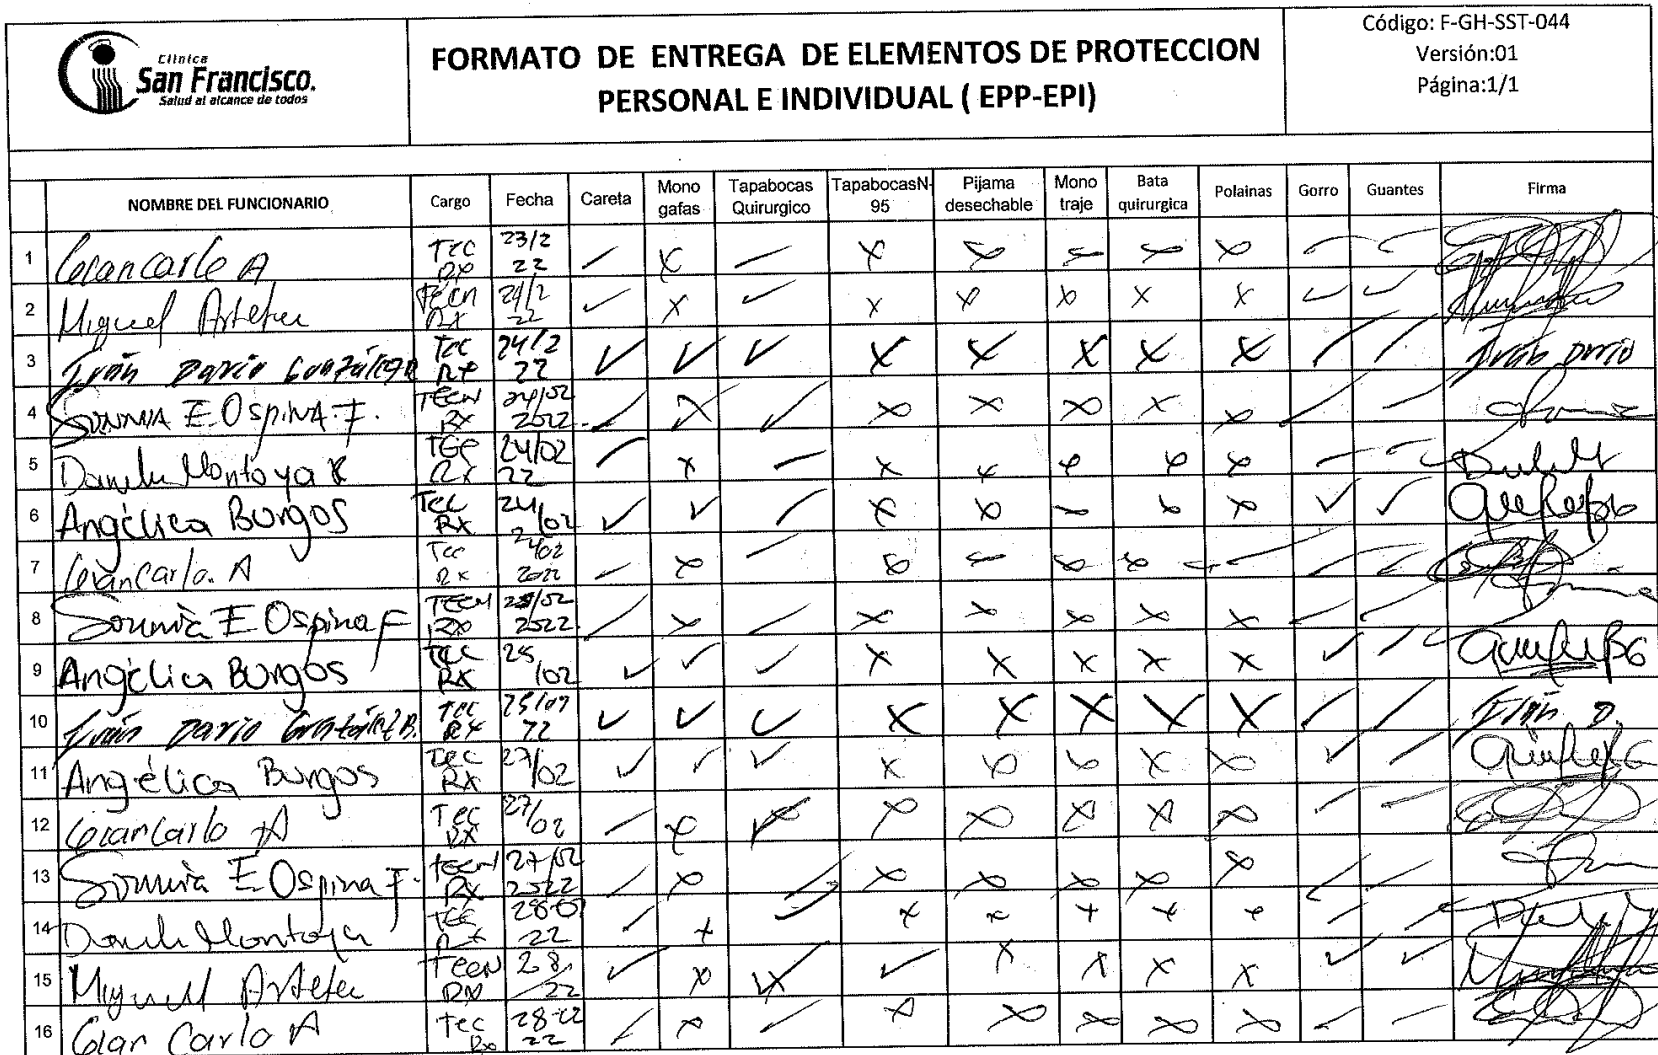 Clínica
San Francisco.
Salud al alcance de todos
FORMATO DE ENTREGA DE ELEMENTOS DE PROTECCION
PERSONAL E INDIVIDUAL ( EPP-EPI)
Código: F-GH-SST-044
Versión:01
Página:1/1
NOMBRE DEL FUNCIONARIO Cargo Fecha Careta Mono gafas Tapabocas Quirurgico TapabocasN-95 Pijama desechable Mono traje Bata quirurgica Polainas Gorro Guantes Firma
1 Giancarlo A Tec RX 23/2 22 ✓ X ✓ X X X X X ✓ ✓
2 Miguel Tecn RX 24/2 22 ✓ X ✓ X X X X X ✓ ✓
3 Iván Dario González B Tec RX 24/2 22 ✓ ✓ ✓ X X X X X ✓ ✓ Iván Dario
4 E. Ospina F. TECN RX 24/02 2022 ✓ X ✓ X X X X X ✓ ✓
5 Montoya Tec RX 24/02 22 ✓ X ✓ X X X X X ✓ ✓
6 Angélica Burgos Tec RX 24/02 ✓ ✓ ✓ X X X X X ✓ ✓
7 Giancarlo. A Tec RX 24/02 2022 ✓ X ✓ X X X X ✓ ✓ ✓
8 E Ospina F TECN RX 25/02 2022 ✓ X ✓ X X X X X ✓ ✓
9 Angélica Burgos Tec RX 25/02 ✓ ✓ ✓ X X X X X ✓ ✓
10 Iván Dario González B. Tec RX 25/02 22 ✓ ✓ ✓ X X X X X ✓ ✓ Iván D.
11 Angélica Burgos Tec RX 27/02 ✓ ✓ ✓ X X X X X ✓ ✓
12 Giancarlo A Tec RX 27/02 ✓ X ✓ X X X X X ✓ ✓
13 E Ospina F. tecn RX 27/02 2022 ✓ X ✓ X X X X X ✓ ✓
14 Montoya Tec RX 28-02 22 ✓ X ✓ X X X X X ✓ ✓
15 Miguel Tecn RX 28/22 ✓ X ✓ ✓ X X X X ✓ ✓
16 Gian Carlo A Tec Rx 28 22 ✓ X ✓ X X X X X ✓ ✓